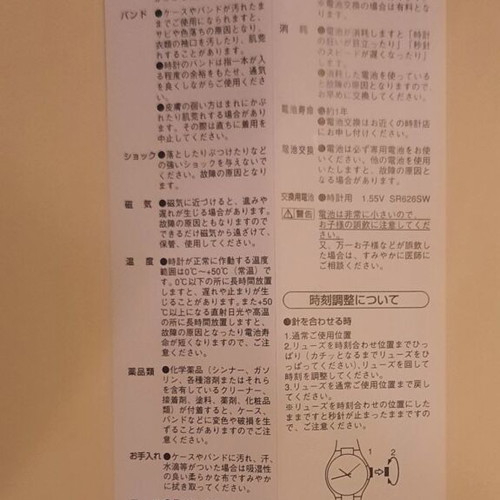 バンド ●ケースやバンドが汚れたま
までご使用になられますと、
サビや色落ちの原因となり、
衣類の袖口を汚したり、肌荒
れすることがあります。
●時計のバンドは指一本が入
る程度の余裕をもたせ、通気
を良くしながらご使用くださ
い。
●皮膚の弱い方はまれにかぶ
れたり肌荒れする場合があり
ます。その際は直ちに着用を
中止してください。
ショック ●落としたりぶつけたりなど
の強いショックを与えないで
ください。故障の原因となり
ます。
磁気 ●磁気に近づけると、進みや
遅れが生じる場合があります。
故障の原因ともなりますので
できるだけ磁気から遠ざけて、
保管、使用してください。
温度 ●時計が正常に作動する温度
範囲は0℃~+50℃（常温）で
す。0℃以下の所に長時間放置
しますと、遅れや止まりが生
じることがあります。また+50
℃以上になる直射日光や高温
の所に長時間放置しますと、
故障の原因となったり電池寿
命が短くなりますので、ご注
意ください。
薬品類 ●化学薬品（シンナー、ガソ
リン、各種溶剤またはそれら
を含有しているクリーナー、
接着剤、塗料、薬剤、化粧品
類）が付着すると、ケース、
バンドなどに変色や破損を生
ずることがありますのでご注
意ください。
お手入れ ●ケースやバンドに汚れ、汗、
水滴等がついた場合は吸湿性
の良い柔らかな布ですみやか
に拭き取ってください。
※電池交換の場合は有料とな
ります。
消耗 ●電池が消耗しますと「時計
の狂いが目立ったり」「秒針
のスピードが遅くなったり」
します。
●消耗した電池を使っている
と故障の原因となりますので
お早めに交換してください。
電池寿命 ●約1年
●電池交換はお近くの時計店
にお申し付けください。
電池交換 ●電池は必ず専用電池をお使
いください。他の電池を使用
いたしますと、故障の原因と
なる場合があります。
交換用電池 ●時計用 1.55V SR626SW
警告 電池は非常に小さいので、
お子様の誤飲に注意してくだ
さい。
又、万一お子様などが誤飲し
た場合は、すみやかに医師に
ご相談ください。
時刻調整について
●針を合わせる時
1.通常ご使用位置
2.リューズを時刻合わせ位置までひっ
ぱり（カチッとなるまでリューズをひ
っぱってください）、リューズを回して
時刻を調整してください。
3.リューズを通常ご使用位置まで戻し
てください。
※リューズを時刻合わせの位置にした
ままですと秒針が止まったままですの
で、ご注意ください。
1 2